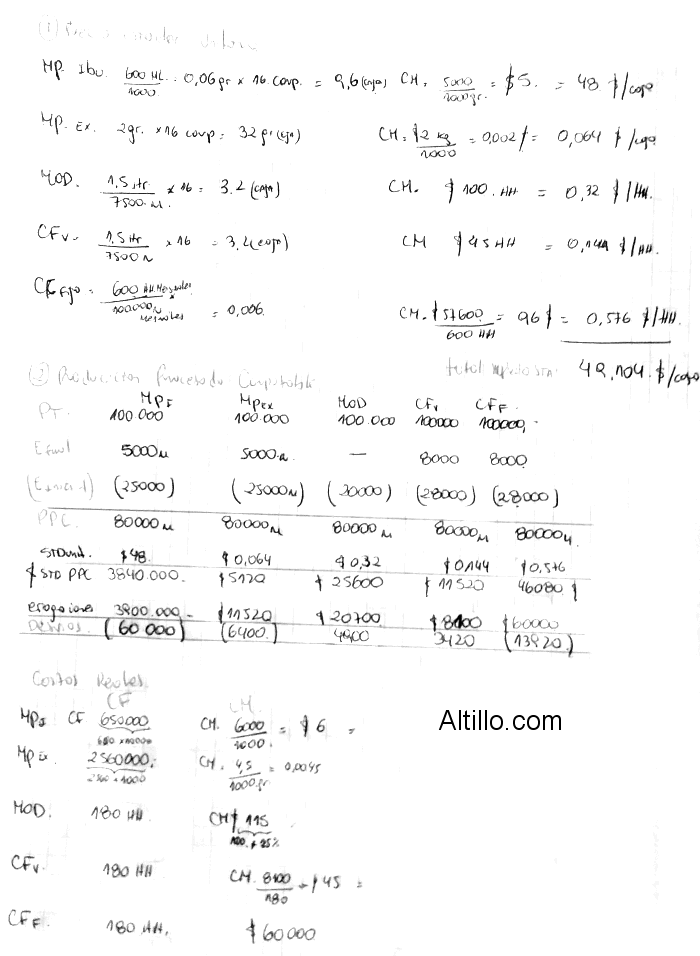 MP. Ibu. 600 HL / 1000 . 0,06 gr. × 16 comp. = 9,6 (caja) CM. 5000 / 1000 gr. = $5. = 48 $/caja
MP. Ex. 2gr. × 16 comp = 32 gr (caja) CM. $2 kg / 1000 = 0,002 = 0,064 $/caja
MOD. 1,5 Hr / 7500 u. × 16 = 3.2 (caja) CM. $ 100. HH = 0,32 $/HH.
CFv. 1,5 Hr / 7500 u × 16 = 3.2 (caja) CM $ 45 HH = 0,144 $/HH.
600 HH Mensuales / 100000 u Mensuales = 0,006. CM. $57600 / 600 HH = 96 $ = 0,576 $/HH.
49,104. $/caja
MPI MPEX MOD CFv CFF.
PT. 100.000 100.000 100.000 100000 100000,-
E final 5000 u 5000 u. — 8000 8000
(25000) (25000 u) (20000) (28000) (28000)
PPC. 80000 u 80000 u 80000 u 80000 u 80000 u.
STDund. $48. $0,064 $0,32 $0,144 $0,576
$ STD PPC 3840.000. $5120 $ 25600 $ 11520 46080 $
erogaciones 3900.000 - $11520 $ 20700 $8100 $60000
Desvios. (60 000) (6400. 4900 3420 (13920)
Costos Reales
CF CM.
MPI CF 650000 CM. 6000 / 1000. = $6 =
650 × 1000
MP Ex. 2560000. CM. 4,5 / 1000 gr. = 0,0045
2560 × 1000
MOD. 180 HH CM $ 115
100. + 25%
CFv. 180 HH CM. 8100 / 180 = $45 =
CFF 180 HH. $60000
Altillo.com